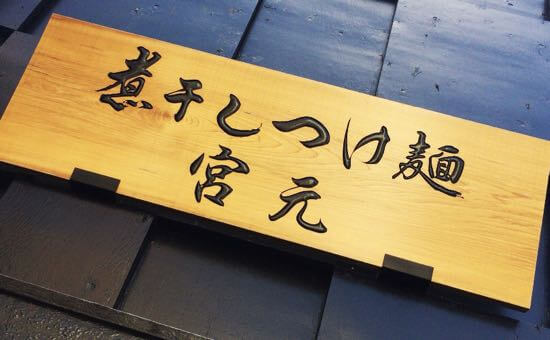 煮干しつけ麺
宮元